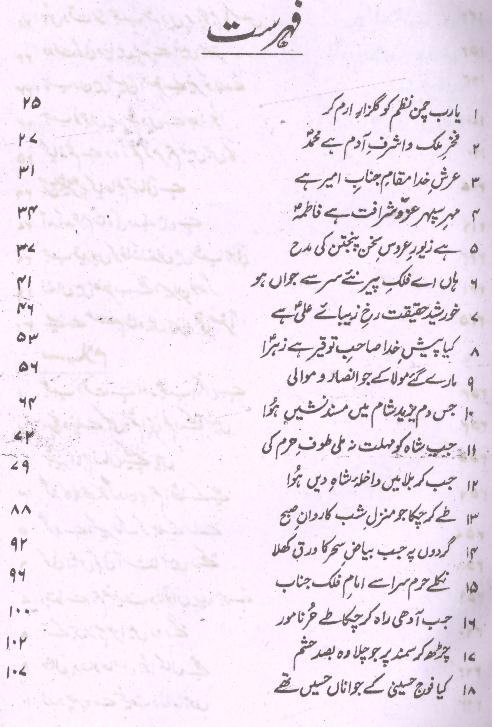 فہرست
۱ یارب چمنِ نظم کو گلزارِ ارم کر ۲۵
۲ فخرِ ملک و اشرفِ آدم ہے محمدؐ ۲۷
۳ عرشِ خدا مقامِ جنابِ امیر ہے ۳۱
۴ مہرِ سپہرِ عزّ و شرافت ہے فاطمہؑ ۳۴
۵ ہے زیورِ عروسِ سخن پنجتن کی مدح ۳۷
۶ ہاں اے فلکِ پیر نئے سر سے جواں ہو ۴۱
۷ خورشیدِ حقیقت رخِ زیبائے علیؑ ہے ۴۶
۸ کیا پیشِ خدا صاحبِ توقیر ہے زہراؑ ۵۳
۹ مارے گئے مولا کے جو انصار و موالی ۵۶
۱۰ جس دم یزید شام میں مسند نشیں ہُوا ۶۴
۱۱ جب شاہ کو مہلت نہ ملی طوفِ حرم کی ۷۲
۱۲ جب کربلا میں داخلۂ شاہِ دیں ہُوا ۷۹
۱۳ طے کر چکا جو منزلِ شب کاروانِ صبح ۸۸
۱۴ گردوں پر جب بیاضِ سحر کا ورق کھلا ۹۲
۱۵ نکلے حرم سرا سے امامِ فلک جناب ۹۶
۱۶ جب آدھی راہ کر چکا طے حُرِ نامور ۱۰۰
۱۷ چڑھ کر سمند پر جو چلا وہ بصد حشم ۱۰۲
۱۸ کیا فوجِ حسینی کے جواناں حسیں تھے ۱۰۷